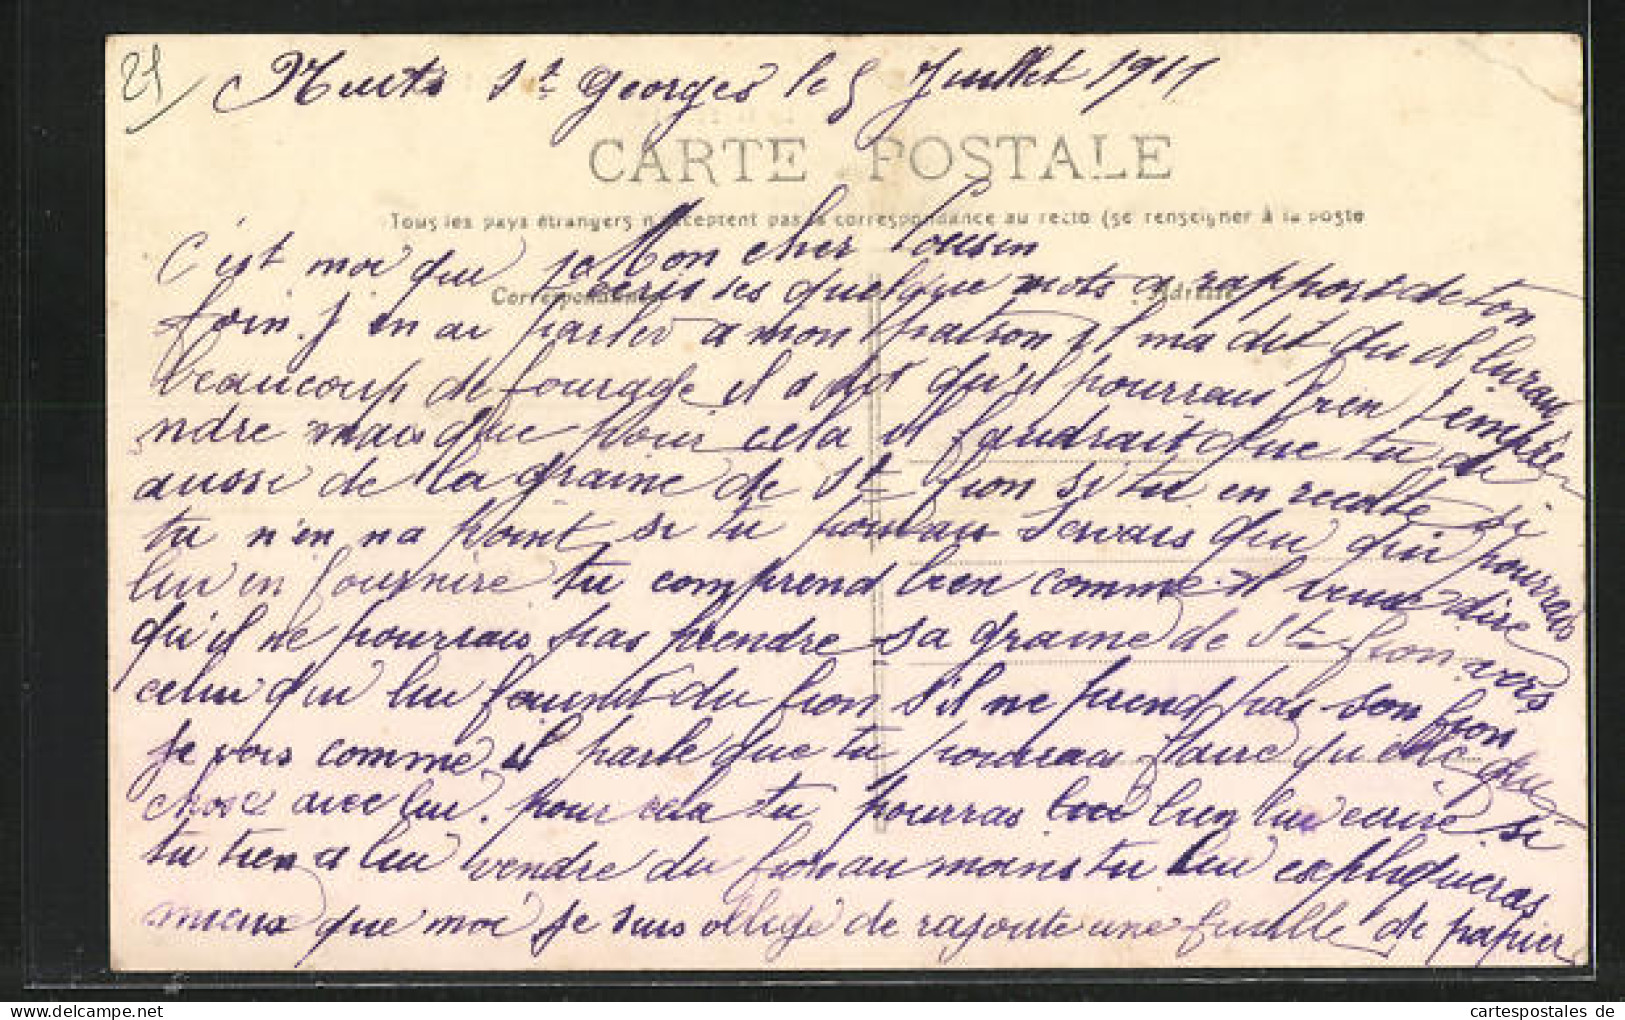 21
Nuits St Georges le 5 Juillet 1911
CARTE POSTALE
Tous les pays étrangers n'acceptent pas la correspondance au recto (se renseigner à la poste
Mon cher Cousin
Correspondance
Adresse
C'est moi que je ecris ses quelque mots a rapport de ton
foin. J en ai parler a mon patron il ma dit qu il lui
beaucoup de fourage il a dit qu'il pourrais bien temprée
ndre mais que pour cela il faudrait que tu
aussi de la graine de St foin si tu en recolte si
tu n'en na point si tu pouvau qui pourrais
lui en fournire tu comprend bien comme il veux dire
qu'il ne pourrais pas prendre sa graine de St foin avers
celui qui lui fournit du foin s'il ne prend pas son foin
Je vois comme il parle que tu pourrai faire quelque
chose avec lui. pour cela tu pourras bien lui ecrire si
tu tien a lui vendre du foin au moins tu lui expliqueras
mieux que moi je suis obligé de rajouté une feuille de papier
cartespostales de